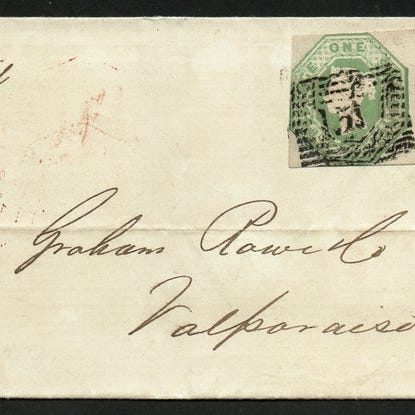 ONE
Graham Rowe & Co
Valparaiso